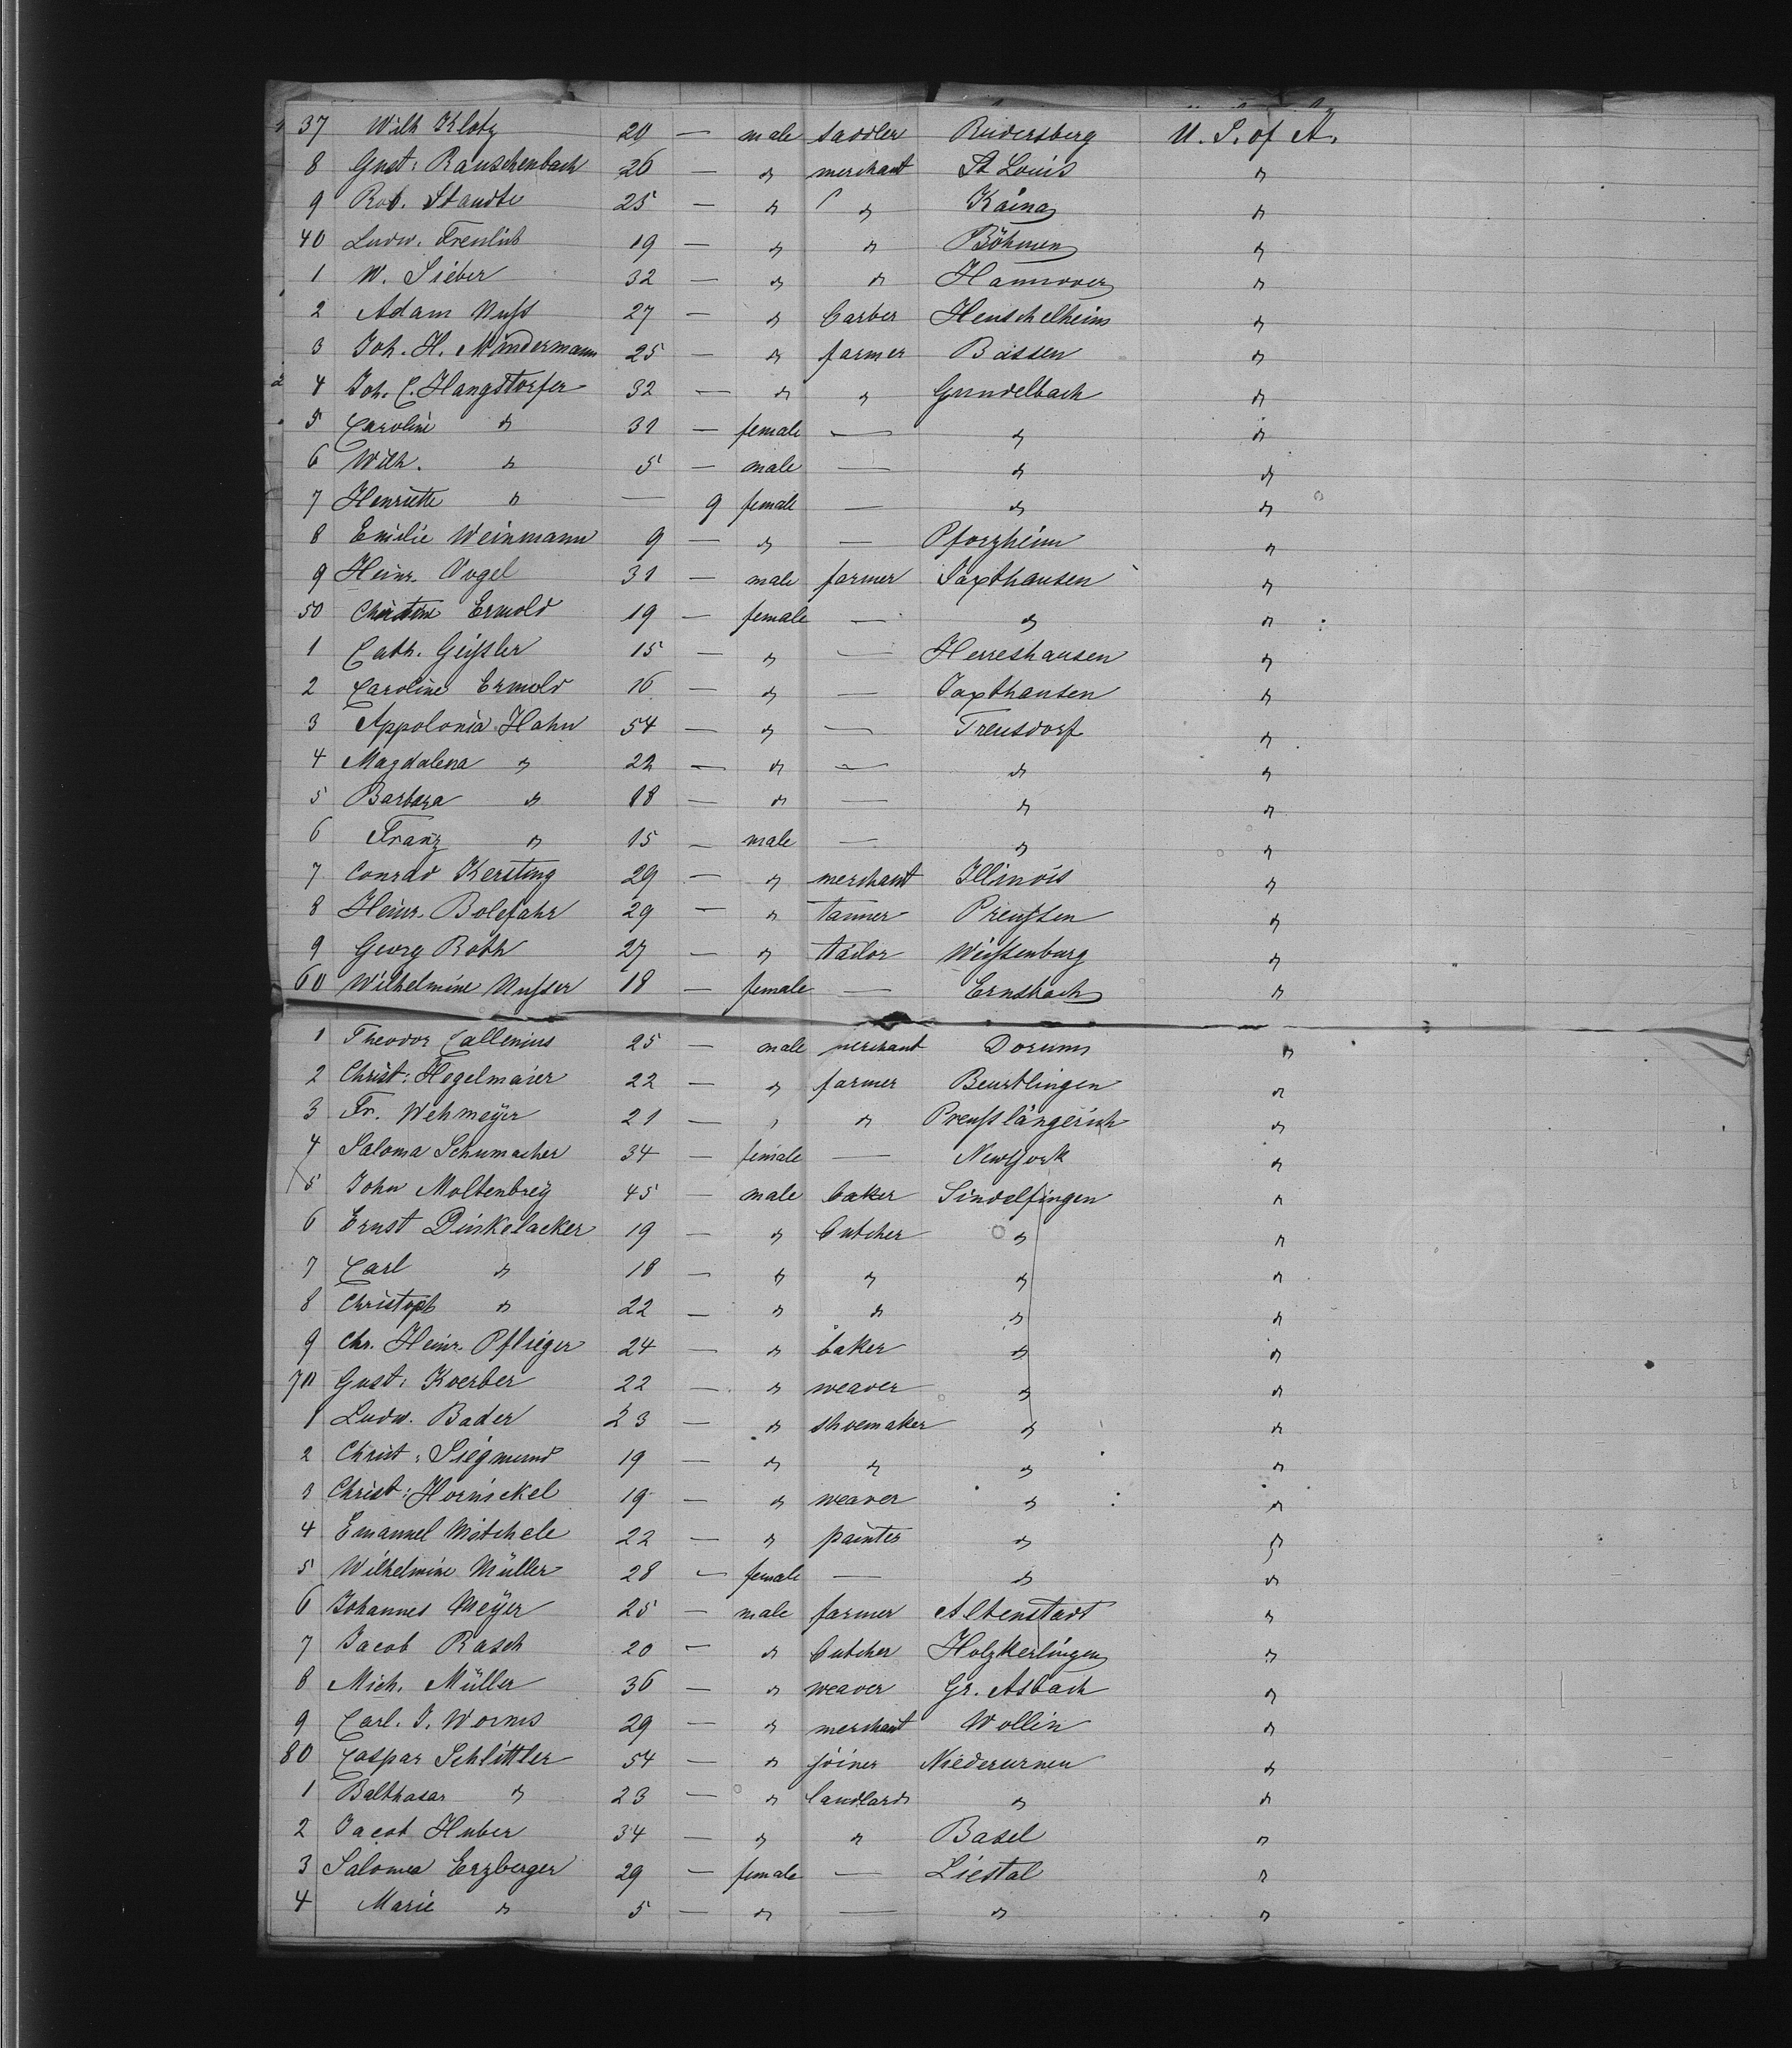 37 Wilh Klotz 20 — male saddler Rudersberg U. S. of A.
8 Gust: Rauschenbach 26 — " merchant St Louis "
9 Rob. Staudte 25 — " " Kaina "
40 Ludw. 19 — " " Böhmen "
1 W. Sieber 32 — " " Hannover "
2 Adam Nuss 27 — " barber Heuchelheim "
3 Joh. H. Mindermann 25 — " farmer Bassen "
4 Joh. C. Hangstorfer 32 — " " Gundelbach "
5 Caroline " 31 — female — " "
6 Wilh. " 5 — male — " "
7 Henriette " — 9 female — " "
8 Emilie Weinmann 9 — " — Pforzheim "
9 Heinr. Vogel 31 — male farmer Jaxthausen "
50 Christine Ermold 19 — female — " "
1 Cath. Geissler 15 — " — Herreshausen "
2 Caroline Ermold 16 — " — Jaxthausen "
3 Appolonia Hahn 54 — " — Treusdorf "
4 Magdalena " 22 — " — " "
5 Barbara " 18 — " — " "
6 Franz " 15 — male — " "
7 Conrad Kersting 29 — " merchant Illinois "
8 Heinr. Bolefahr 29 — " tanner Preussen "
9 Georg Roth 27 — " tailor Weissenburg "
60 Wilhelmine Nusser 18 — female — Ernsbach "
1 Theodor Callenius 25 — male merchant Dorum "
2 Christ: Hegelmaier 22 — " farmer "
3 Fr. Wehmeyer 21 — " " Preusslängerich "
4 Saloma Schumacher 34 — female — NewYork "
5 John Moltenbrey 45 — male baker Sindelfingen "
6 Ernst Dinkelacker 19 — " butcher " "
7 Carl " 18 — " " " "
8 Christoph " 22 — " " " "
9 Chr. Heinr. Pflieger 24 — " baker " "
70 Gust: Koerber 22 — " weaver " "
1 Ludw. Bader 23 — " shoemaker " "
2 Christ: Siegmund 19 — " " " "
3 Christ: Hornickel 19 — " weaver " "
4 Emanuel Mitchele 22 — " painter " "
5 Wilhelmine Müller 28 — female — " "
6 Johannes Meÿer 25 — male farmer Altenstadt "
7 Jacob Rasch 20 — " butcher Holzkerlingen "
8 Mich. Müller 36 — " weaver Gr. Asbach "
9 Carl. J. Worms 29 — " merchant Wollin "
80 Caspar Schlittler 54 — " joiner Niederurnen "
1 Balthasar " 23 — " landlord " "
2 Jacob Huber 34 — " " Basel "
3 Salomea Erzberger 29 — female — Liestal "
4 Marie " 5 — " — " "